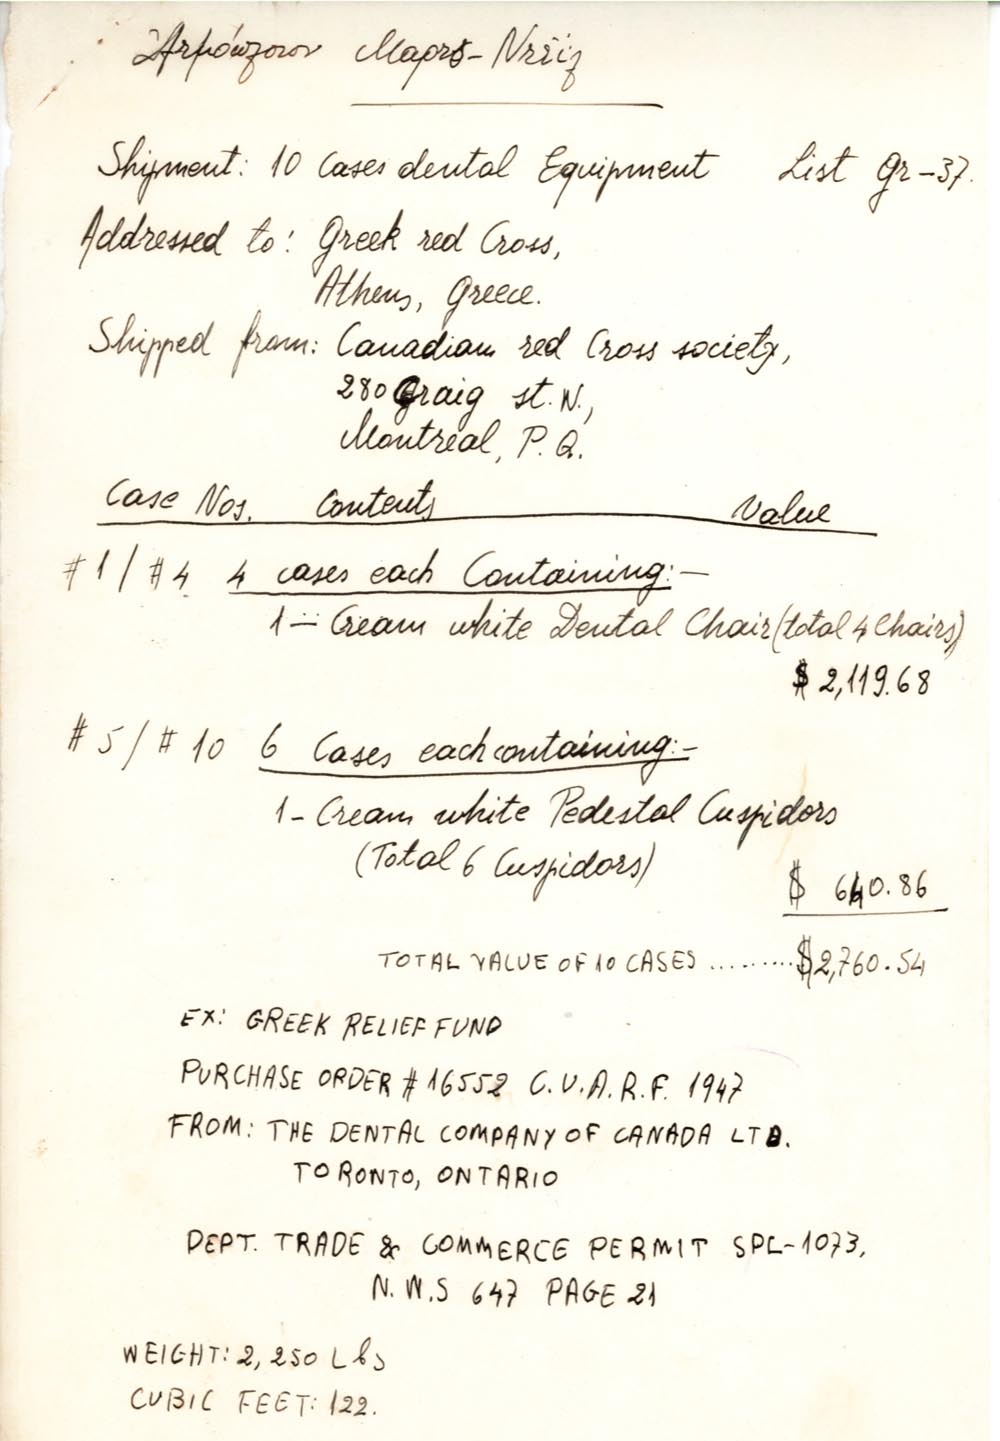 Shipment: 10 Cases dental Equipment List Gr-37.
Addressed to: Greek red Cross,
Athens, Greece.
Shipped from: Canadian red Cross society,
280 Graig st. N.,
Montreal, P.Q.
Case Nos. Contents Value
#1/#4 4 cases each Containing:-
1- Cream white Dental Chair (total 4 Chairs)
$ 2,119.68
#5/#10 6 Cases each containing:-
1- Cream white Pedestal Cuspidors
(Total 6 Cuspidors)
$ 640.86
TOTAL VALUE OF 10 CASES ......... $2,760.54
EX: GREEK RELIEF FUND
PURCHASE ORDER # 16552 C.V.A.R.F. 1947
FROM: THE DENTAL COMPANY OF CANADA LTD.
TORONTO, ONTARIO
DEPT. TRADE & COMMERCE PERMIT SPL-1073,
N.W.S 647 PAGE 21
WEIGHT: 2,250 Lbs
CUBIC FEET: 122.